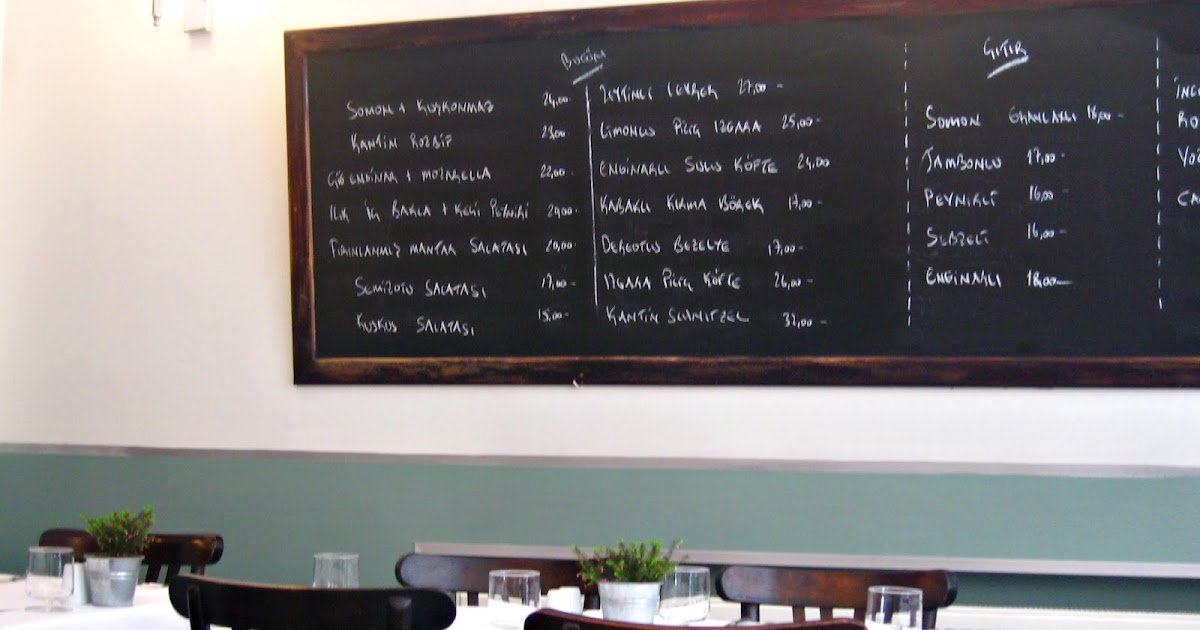 BUGÜN
SOMON + KUŞKONMAZ 24,00-
KANTİN ROZBİF 23,00
ÇİĞ ENGİNAR + MOZARELLA 22,00-
ILIK İÇ BAKLA + KEÇİ PEYNİRİ 20,00-
FIRINLANMIŞ MANTAR SALATASI 20,00-
SEMİZOTU SALATASI 17,00-
KUSKUS SALATASI 15,00-
ZEYTİNLİ LEVREK 27,00-
LİMONLU PİLİÇ IZGARA 25,00-
ENGİNARLI SULU KÖFTE 24,00
KABAKLI KIYMA BÖREK 17,00-
DEREOTLU BEZELYE 17,00-
IZGARA PİLİÇ KÖFTE 26,00-
KANTİN SCHNITZEL 32,00-
ÇITIR
SOMON 18,00-
JAMBONLU 17,00-
PEYNİRLİ 16,00-
SEBZELİ 16,00-
ENGİNARLI 18,00-